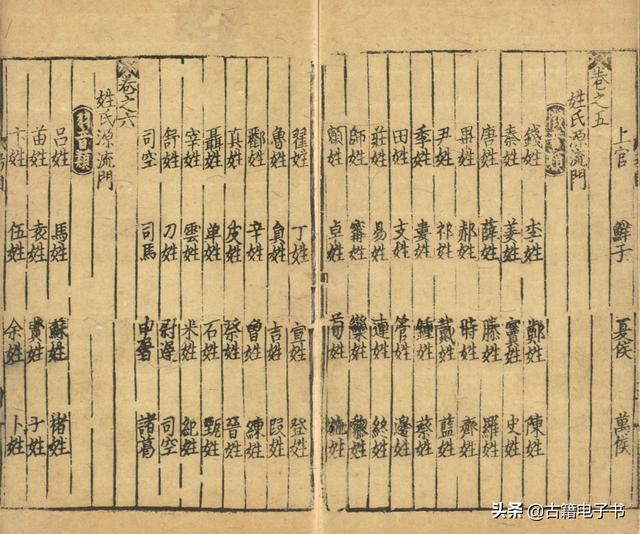 上官 鮮于 夏侯 萬俟
卷之五
姓氏源流門
類
錢姓 李姓 鄭姓 陳姓
秦姓 姜姓 竇姓 史姓
唐姓 薛姓 滕姓 羅姓
畢姓 郝姓 時姓 齊姓
尹姓 祁姓 戴姓 藍姓
季姓 婁姓 鍾姓 蔡姓
田姓 支姓 管姓 邊姓
莊姓 易姓 連姓 終姓
師姓 甯姓 欒姓 黎姓
顧姓 卓姓 荀姓 姓
翟姓 丁姓 宣姓 登姓
魯姓 貟姓 吉姓 姓
酈姓 辛姓 曾姓 練姓
真姓 皮姓 祭姓 晉姓
聶姓 單姓 石姓 甄姓
宰姓 雲姓 米姓 紀姓
舒姓 刀姓 尉遲 司空
司空 司馬 申屠 諸葛
卷之六
姓氏源流門
羽音類
呂姓 馬姓 蘇姓 褚姓
苗姓 袁姓 姓 于姓
卞姓 伍姓 余姓 卜姓
头条 @古籍电子书